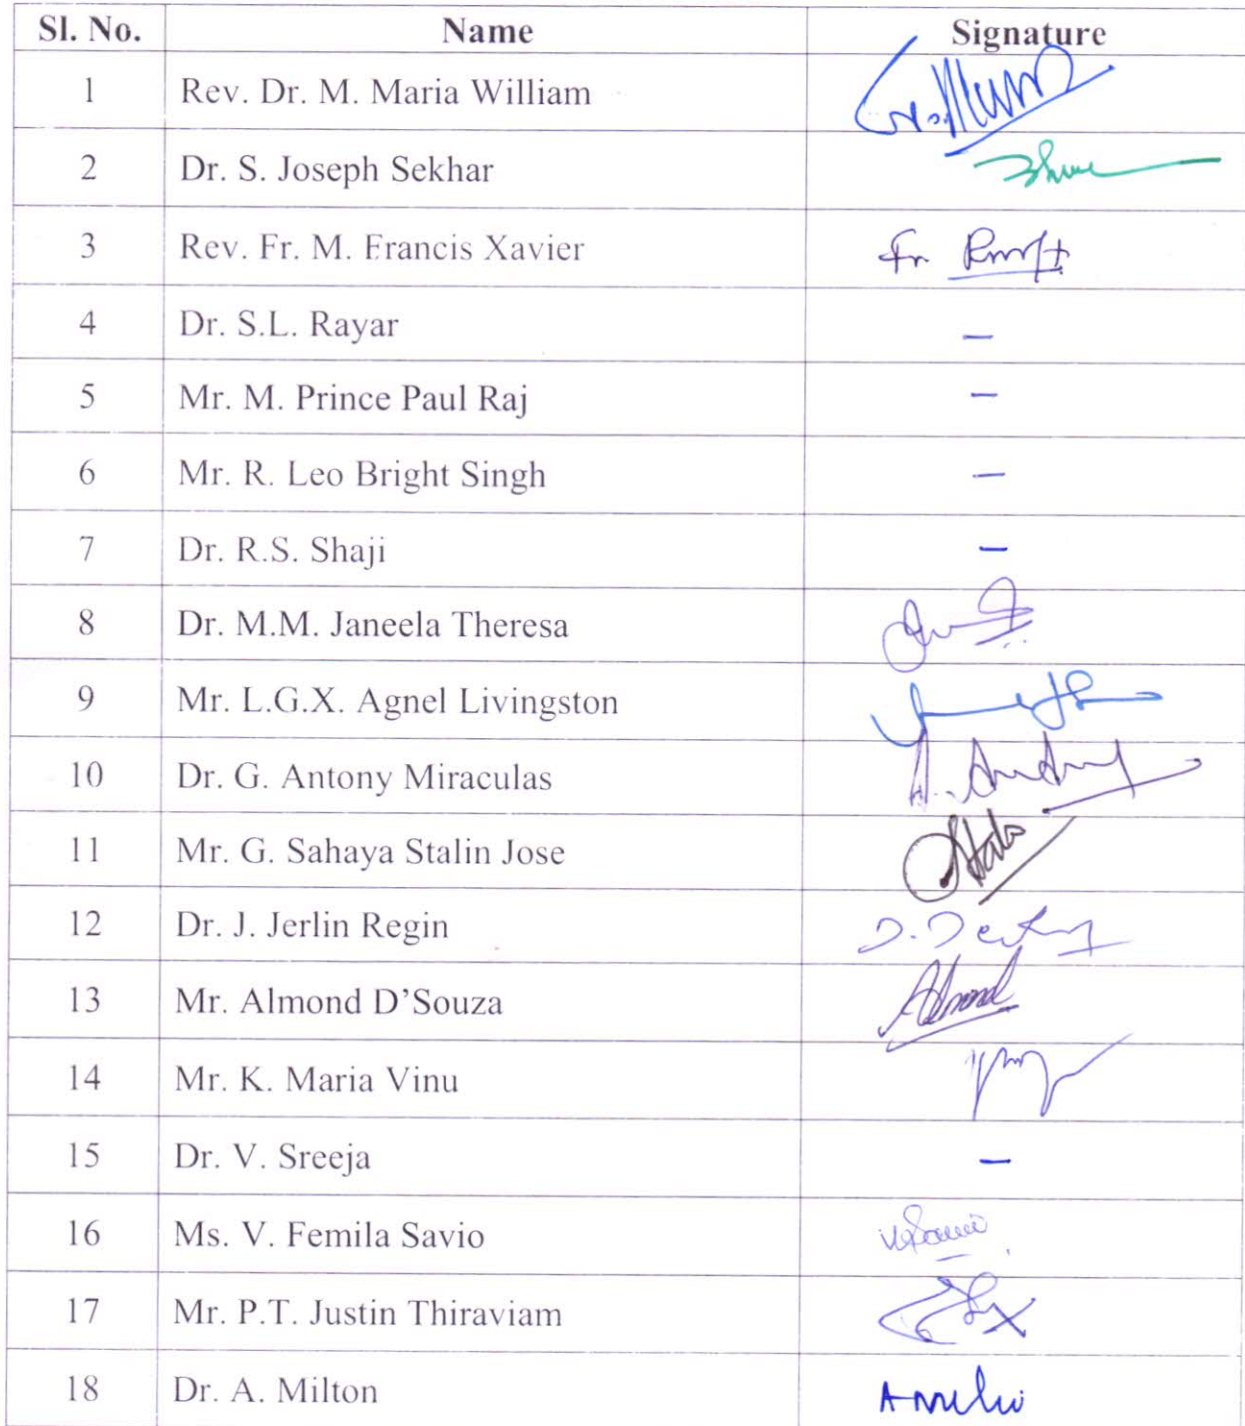 Sl. No. Name Signature
1 Rev. Dr. M. Maria William
2 Dr. S. Joseph Sekhar
3 Rev. Fr. M. Francis Xavier Fr
4 Dr. S.L. Rayar –
5 Mr. M. Prince Paul Raj –
6 Mr. R. Leo Bright Singh –
7 Dr. R.S. Shaji –
8 Dr. M.M. Janeela Theresa
9 Mr. L.G.X. Agnel Livingston
10 Dr. G. Antony Miraculas
11 Mr. G. Sahaya Stalin Jose
12 Dr. J. Jerlin Regin
13 Mr. Almond D’Souza Almond
14 Mr. K. Maria Vinu
15 Dr. V. Sreeja –
16 Ms. V. Femila Savio
17 Mr. P.T. Justin Thiraviam
18 Dr. A. Milton